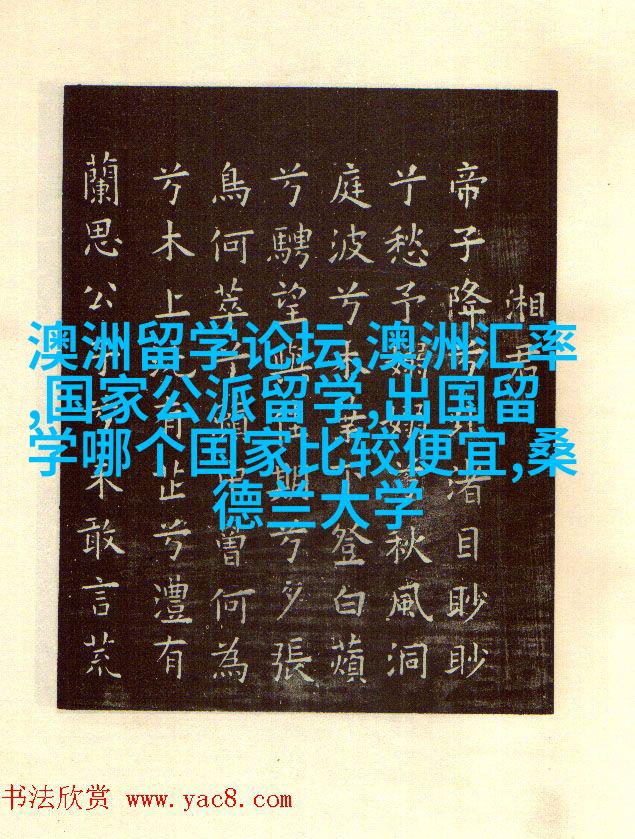 湘君
帝子降兮北渚目眇眇
兮愁予嫋嫋兮秋風洞
庭波兮木葉下登白蘋
兮騁望與佳期兮夕張
鳥何萃兮蘋中曾何為
兮木上沅有芷兮澧有
蘭思公子兮未敢言荒
澳洲留学论坛,澳洲汇率
,国家公派留学,出国留
学哪个国家比较便宜,桑
德兰大学
书法欣赏 www.yac8.com